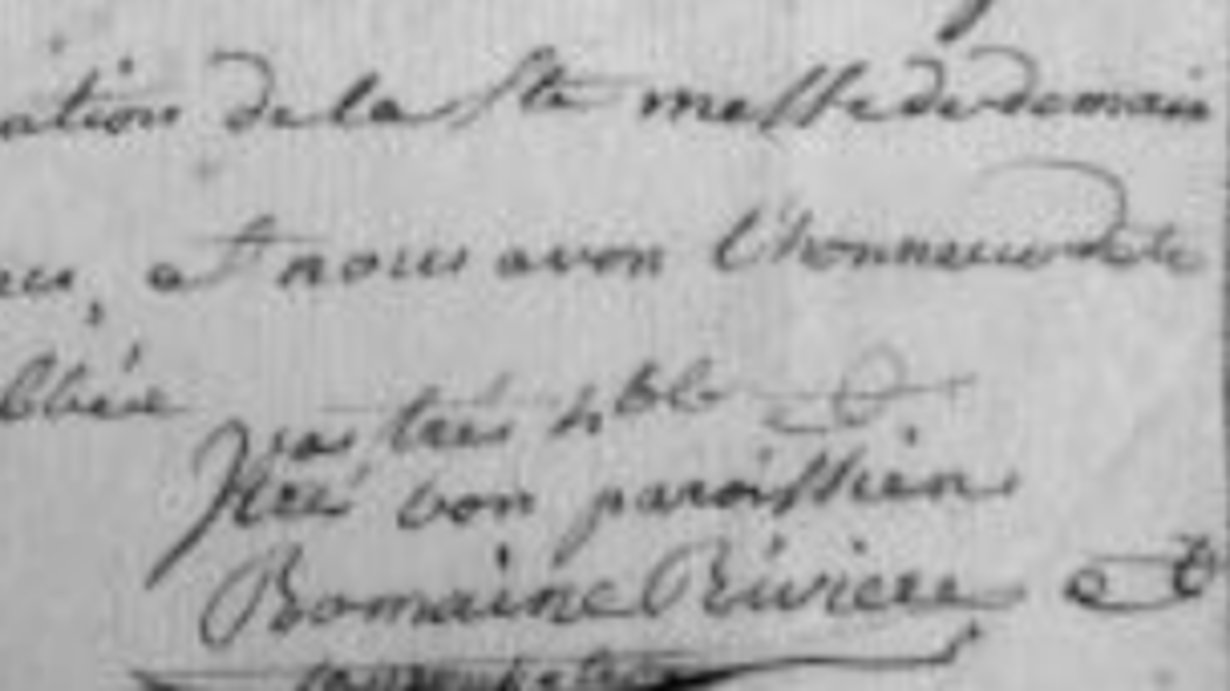 ation de la Ste messe de demain
et nous avon l'honneur de
vos très hble et
tres bon paroissiens
Romaine Riviere et